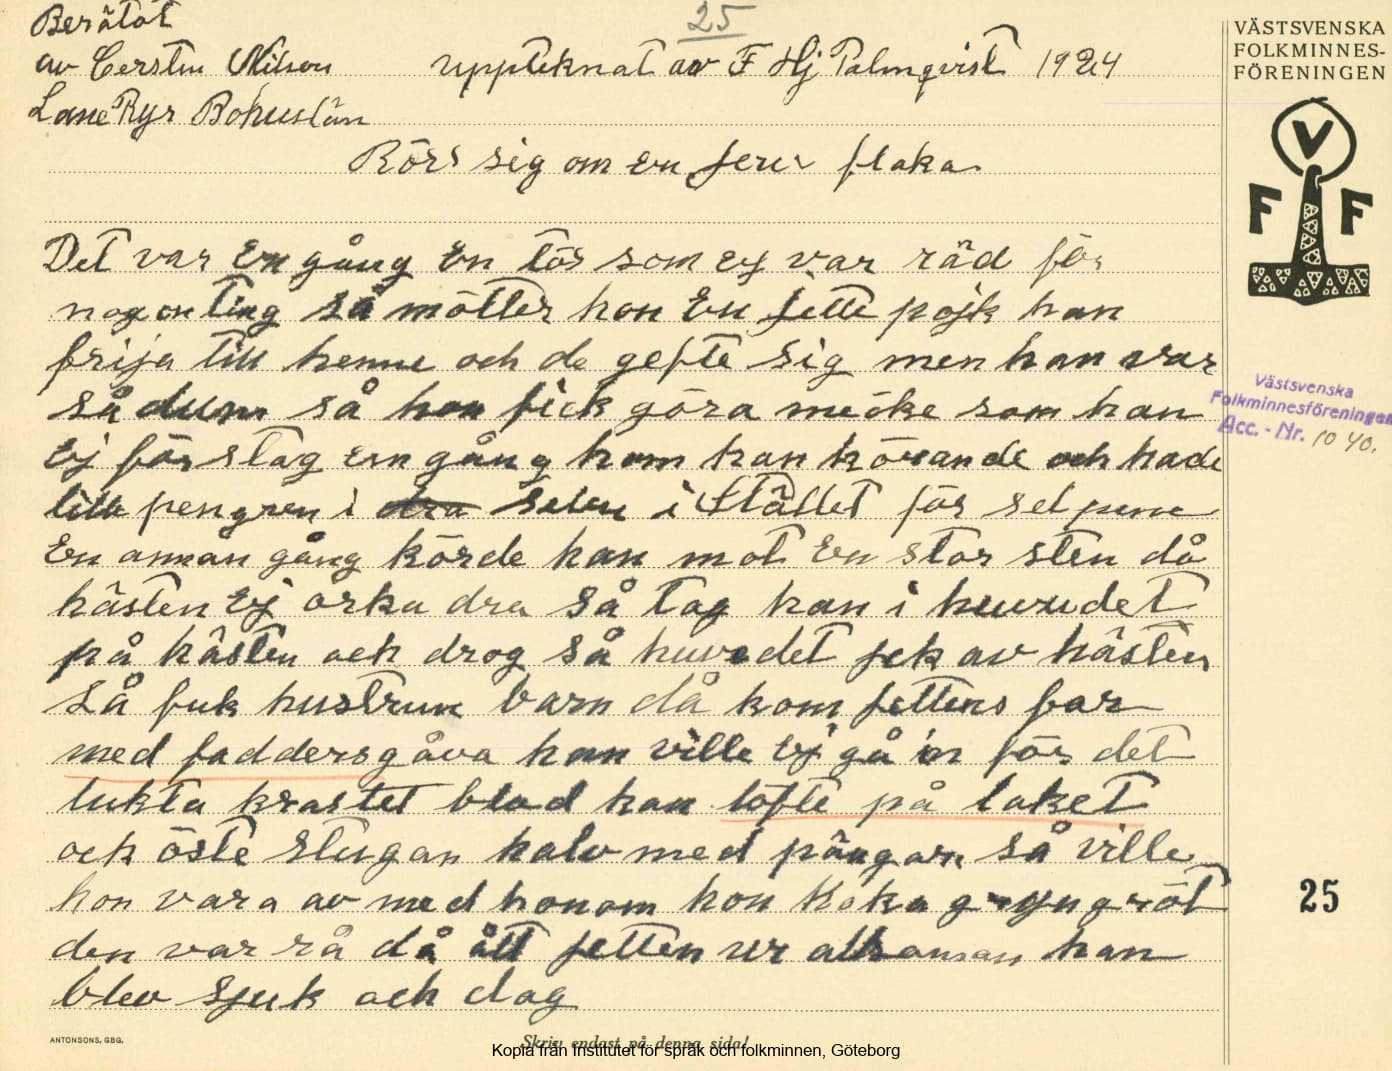 25
Berätat
av Cerstin Nilson uppteknat av F Hj Palmqvist 1924
Lane Ryr Bohuslän
Rörs sig om en flaka
Det var En gång En tös som ej var räd för
nogonting så mötter hon En jette pojk han
frija till henne och de gefte sig men han var
så dum så hon fick göra mecke som han
Ej för stog em gång kom han körande och hade
lilla pengren i dra selen i Stället för selpine
En annan gång körde han mot En stor sten då
hästen Ej orka dra så tog han i huvudet
på hästen och drog så huvedet jek av hästen
Så fuk hustrun barn då kom jettens far
med faddersgåva han ville Ej gå in för det
lukta krastet blod han löfte på laket
och öste stugan halv med pängarn så ville
hon vara av med honom hon Koka gryngröt
den var rå då ått jetten ur altsaman han
blev sjuk och dog
VÄSTSVENSKA
FOLKMINNES-
FÖRENINGEN
V
F F
Västsvenska
Folkminnesföreningen
Acc. - Nr. 1040.
25
ANTONSONS, GBG.
Skriv endast på denna sida!
Kopia från Institutet för språk och folkminnen, Göteborg